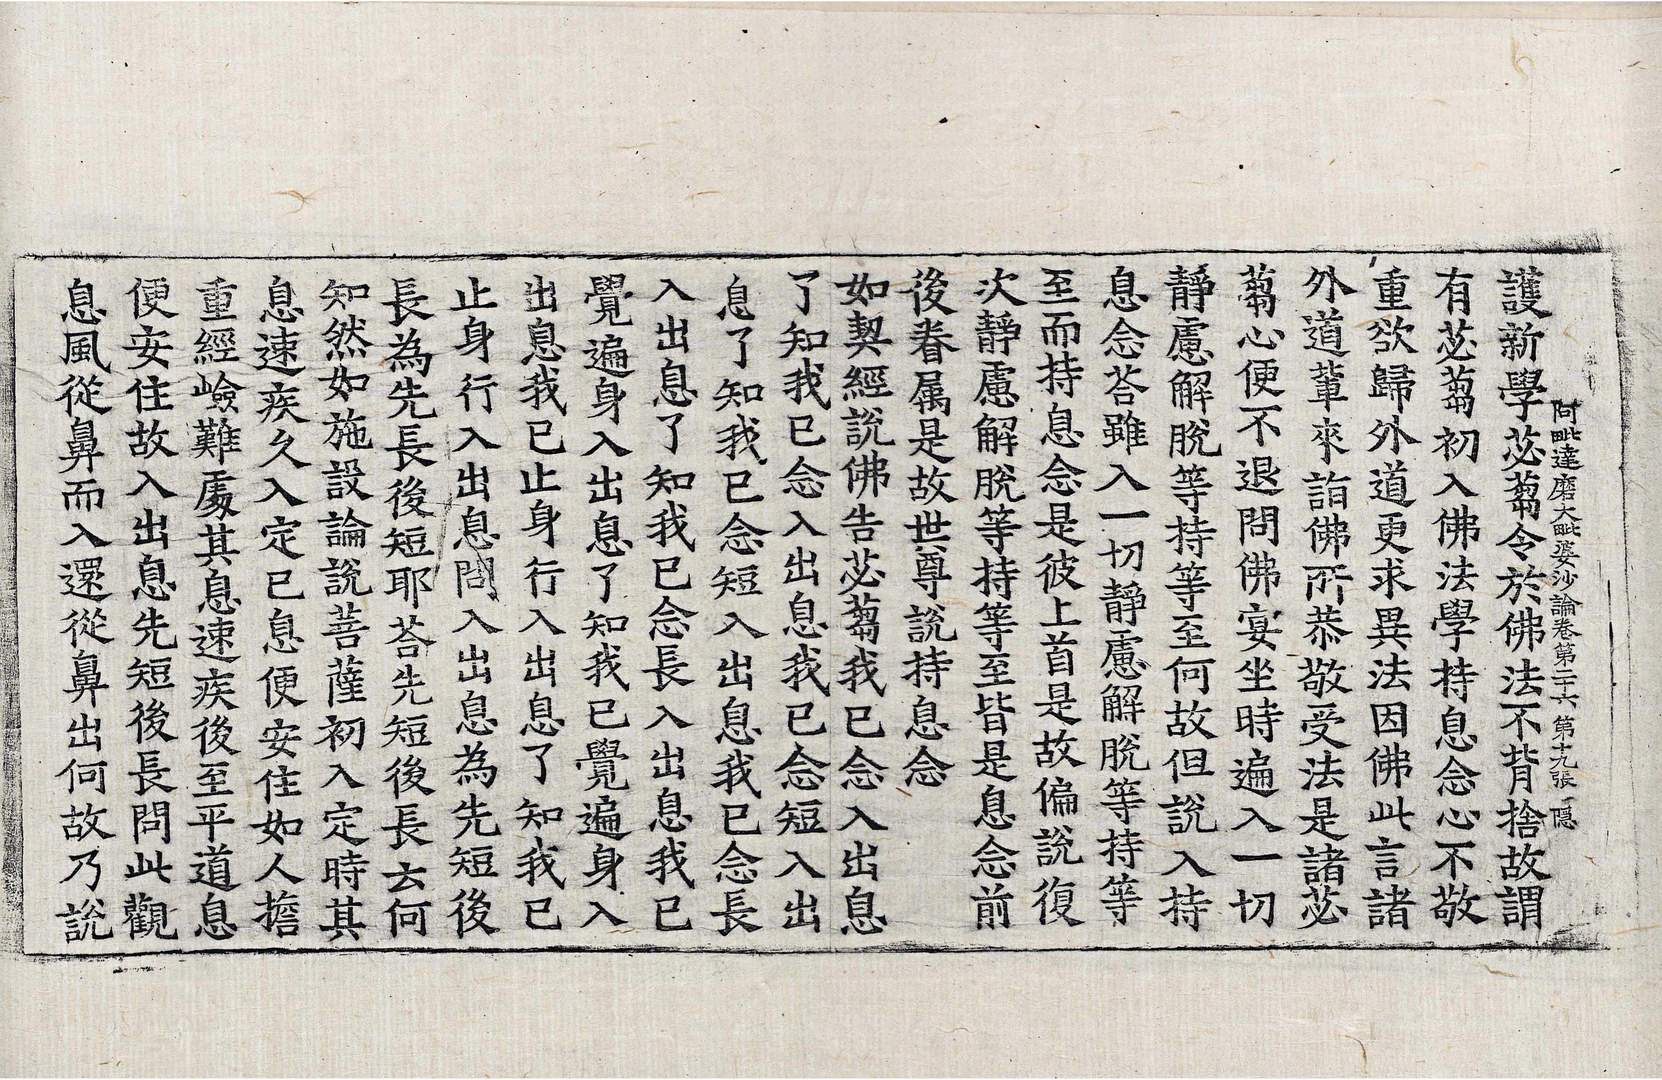 阿毗達磨大毗婆沙論卷第二十六 第十九張 隱
護新學苾蒭令於佛法不背捨故謂
有苾蒭初入佛法學持息念心不敬
重欲歸外道更求異法因佛此言諸
外道輩來詣佛所恭敬受法是諸苾
蒭心便不退問佛宴坐時遍入一切
靜慮解脫等持等至何故但說入持
息念荅雖入一切靜慮解脫等持等
至而持息念是彼上首是故偏說復
次靜慮解脫等持等至皆是息念前
後眷属是故世尊說持息念
如契經說佛告苾蒭我已念入出息
了知我已念入出息我已念短入出
息了知我已念短入出息我已念長
入出息了知我已念長入出息我已
覺遍身入出息了知我已覺遍身入
出息我已止身行入出息了知我已
止身行入出息問入出息為先短後
長為先長後短耶荅先短後長云何
知然如施設論說菩薩初入定時其
息速疾久入定已息便安住如人擔
重經嶮難處其息速疾後至平道息
便安住故入出息先短後長問此觀
息風從鼻而入還從鼻出何故乃說